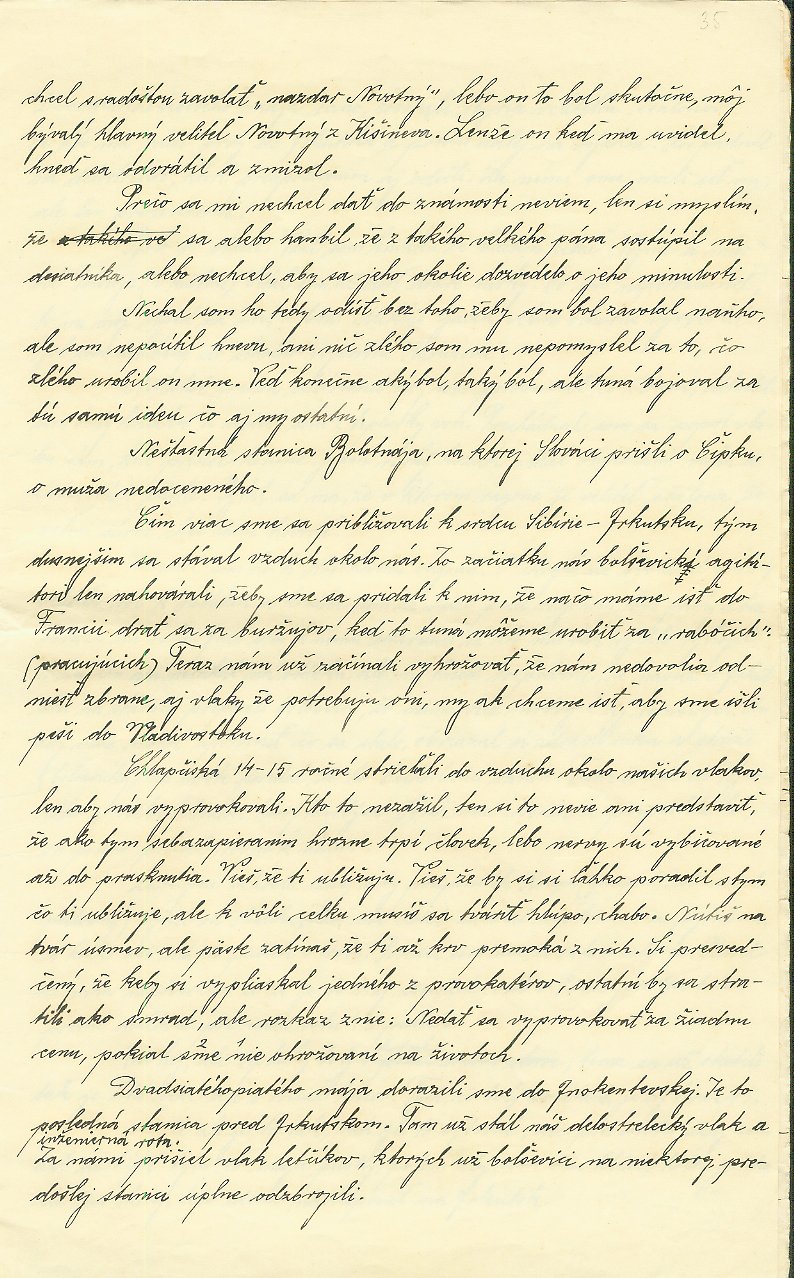 35
chcel s radošťou zavolať „nazdar Novotný", lebo on to bol skutočne, môj
bývalý hlavný veliteľ Novotný z Kišineva. Lenže on keď ma uvidel,
hneď sa odvrátil a zmizol.
Prečo sa mi nechcel dať do známosti neviem, len si myslím,
že a takého veľ sa alebo hanbil, že z takého veľkého pána sostúpil na
desiatnika, alebo nechcel, aby sa jeho okolie dozvedelo o jeho minulosti.
Nechal som ho tedy odísť bez toho, žeby som bol zavolal naňho,
ale som nepocítil hnevu, ani nič zlého som mu nepomyslel za to, čo
zlého urobil on mne. Veď konečne aký bol, taký bol, ale tuná bojoval za
tú samú ideu čo aj my ostatní.
Nešťastná stanica Bolotnája, na ktorej Slováci prišli o Čipku,
o muža nedoceneného.
Čím viac sme sa približovali k srdcu Sibírie – Irkutsku, tým
dusnejším sa stával vzduch okolo nás. Zo začiatku nás bolševickí agitá-
tori len nahovárali, žeby sme sa pridali k nim, že načo máme ísť do
Francii drať sa za buržujov, keď to tuná môžeme urobiť za „rabóčich":
(pracujúcich) Teraz nám už začínali vyhrožovať, že nám nedovolia od-
niesť zbrane, aj vlaky že potrebuju oni, my ak chceme ísť, aby sme išli
peši do Vladivostoku.
Chlapčiská 14-15 ročné strieľali do vzduchu okolo našich vlakov,
len aby nás vyprovokovali. Kto to nezažil, ten si to nevie ani predstaviť,
že ako tym sebazapieranim hrozne trpí človek, lebo nervy sú vybičované
až do prasknutia. Vieš, že ti ubližuju. Vieš, že by si si ľahko poradil s tym
čo ti ubližuje, ale k vôli celku musíš sa tváriť hlúpo, chabo. Nútiš na
tvár úsmev, ale päste zatínaš, že ti až krv premoká z nich. Si presved-
čený, že keby si vypliaskal jedného z provokatérov, ostatní by sa stra-
tili ako smrad, ale rozkaz znie: Nedať sa vyprovokovať za žiadnu
cenu, pokiaľ sme 2 nie 1 ohrožovaní na životoch.
Dvadsiatéhopiatého mája dorazili sme do Inokentevskej. Je to
posledná stanica pred Irkutskom. Tam už stál náš delostrelecký vlak a
inženierna rota.
Za námi prišiel vlak letčíkov, ktorých už bolševici na niektorej pre-
došlej stanici úplne odzbrojili.